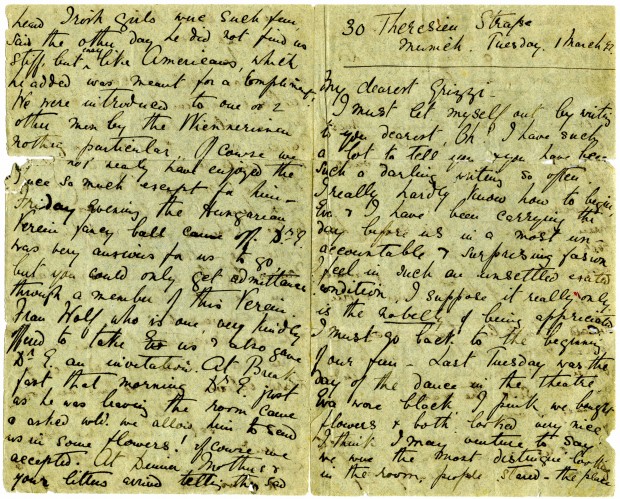 30 Theresien Strasse
Munich Tuesday, 1 March 92.
My dearest Grizzi -
I must let myself out by writing
to you dearest, Oh! I have such
a lot to tell you & you have been
such a darling writing so often.
I really hardly know how to begin,
Eva & I have been carrying the
day before us in a most un
accountable & surprising fashion
I feel in such an unsettled excited
condition, I suppose it really only
is the novelty of being appreciated
I must go back to the beginning
of our fun - Last Tuesday was the
day of the dance in the theatre
Eva wore black, I pink we bought
flowers & both looked very nice
I think I may venture to say
we were the most distingué looking
in the room, people stared - the place
heard Irish girls were such fun,
said the other day he did not find us
stiff but very like Americans, which
he added was meant for a compliment.
We were introduced to one or 2
other men by the Wiennerinnen
nothing particular. Of course we
not nearly have enjoyed the
dance so much except for him -
Friday evening the Hungarian
Verein fancy ball came off. Dr E.
was very anxious for us to go
but you could only get admittance
through a member of this Verein
Frau Wolf who is one very kindly
offered to take us & also gave
Dr E. an invitation. At Break
fast that morning Dr E. just
as he was leaving the room came
& asked wld. we allow him to send
us in some flowers! Of course we
accepted. At Dinner Mother's &
your letters arrived telling this sad